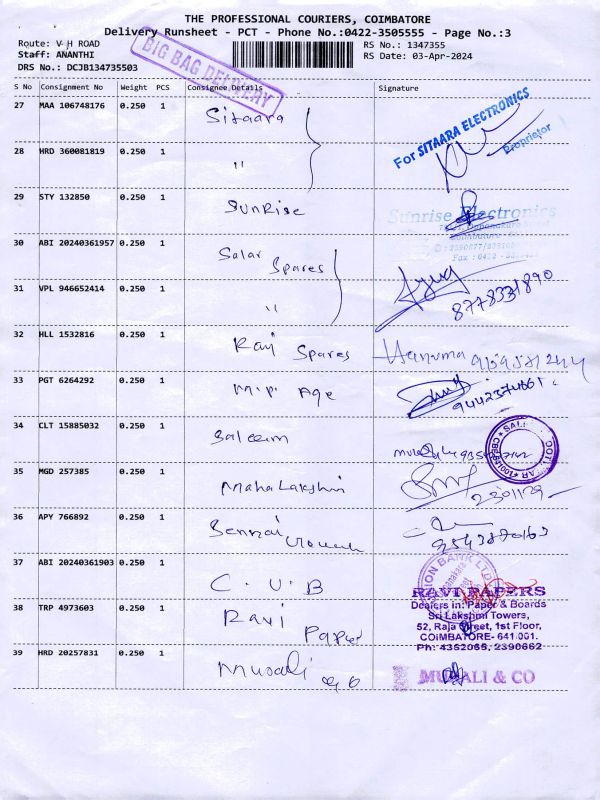 THE PROFESSIONAL COURIERS, COIMBATORE
Delivery Runsheet - PCT - Phone No.:0422-3505555 - Page No.:3
Route: V H ROAD
RS No.: 1347355
Staff: ANANTHI
RS Date: 03-Apr-2024
DRS No.: DCJB134735503
BIG BAG DELIVERY
S No Consignment No Weight PCS Consignee Details Signature
27 MAA 106748176 0.250 1 Sitaara
For SITAARA ELECTRONICS
Proprietor
28 HRD 360081819 0.250 1 "
29 STY 132850 0.250 1 Sunrise
Sunrise Electronics
30 ABI 20240361957 0.250 1 Salar Spares
31 VPL 946652414 0.250 1 "
32 HLL 1532816 0.250 1 Ravi Spares Hanuma
33 PGT 6264292 0.250 1
34 CLT 15885032 0.250 1 Saleem
35 MGD 257385 0.250 1 Mahalakshmi
36 APY 766892 0.250 1
37 ABI 20240361903 0.250 1 C.U.B
38 TRP 4973603 0.250 1 Ravi Paper
RAVI PAPERS
Dealers in: Paper & Boards
Sri Lakshmi Towers,
52, Raja Street, 1st Floor,
COIMBATORE- 641 001.
Ph: 4352065, 2390662
39 HRD 20257831 0.250 1 Murali & Co
MURALI & CO